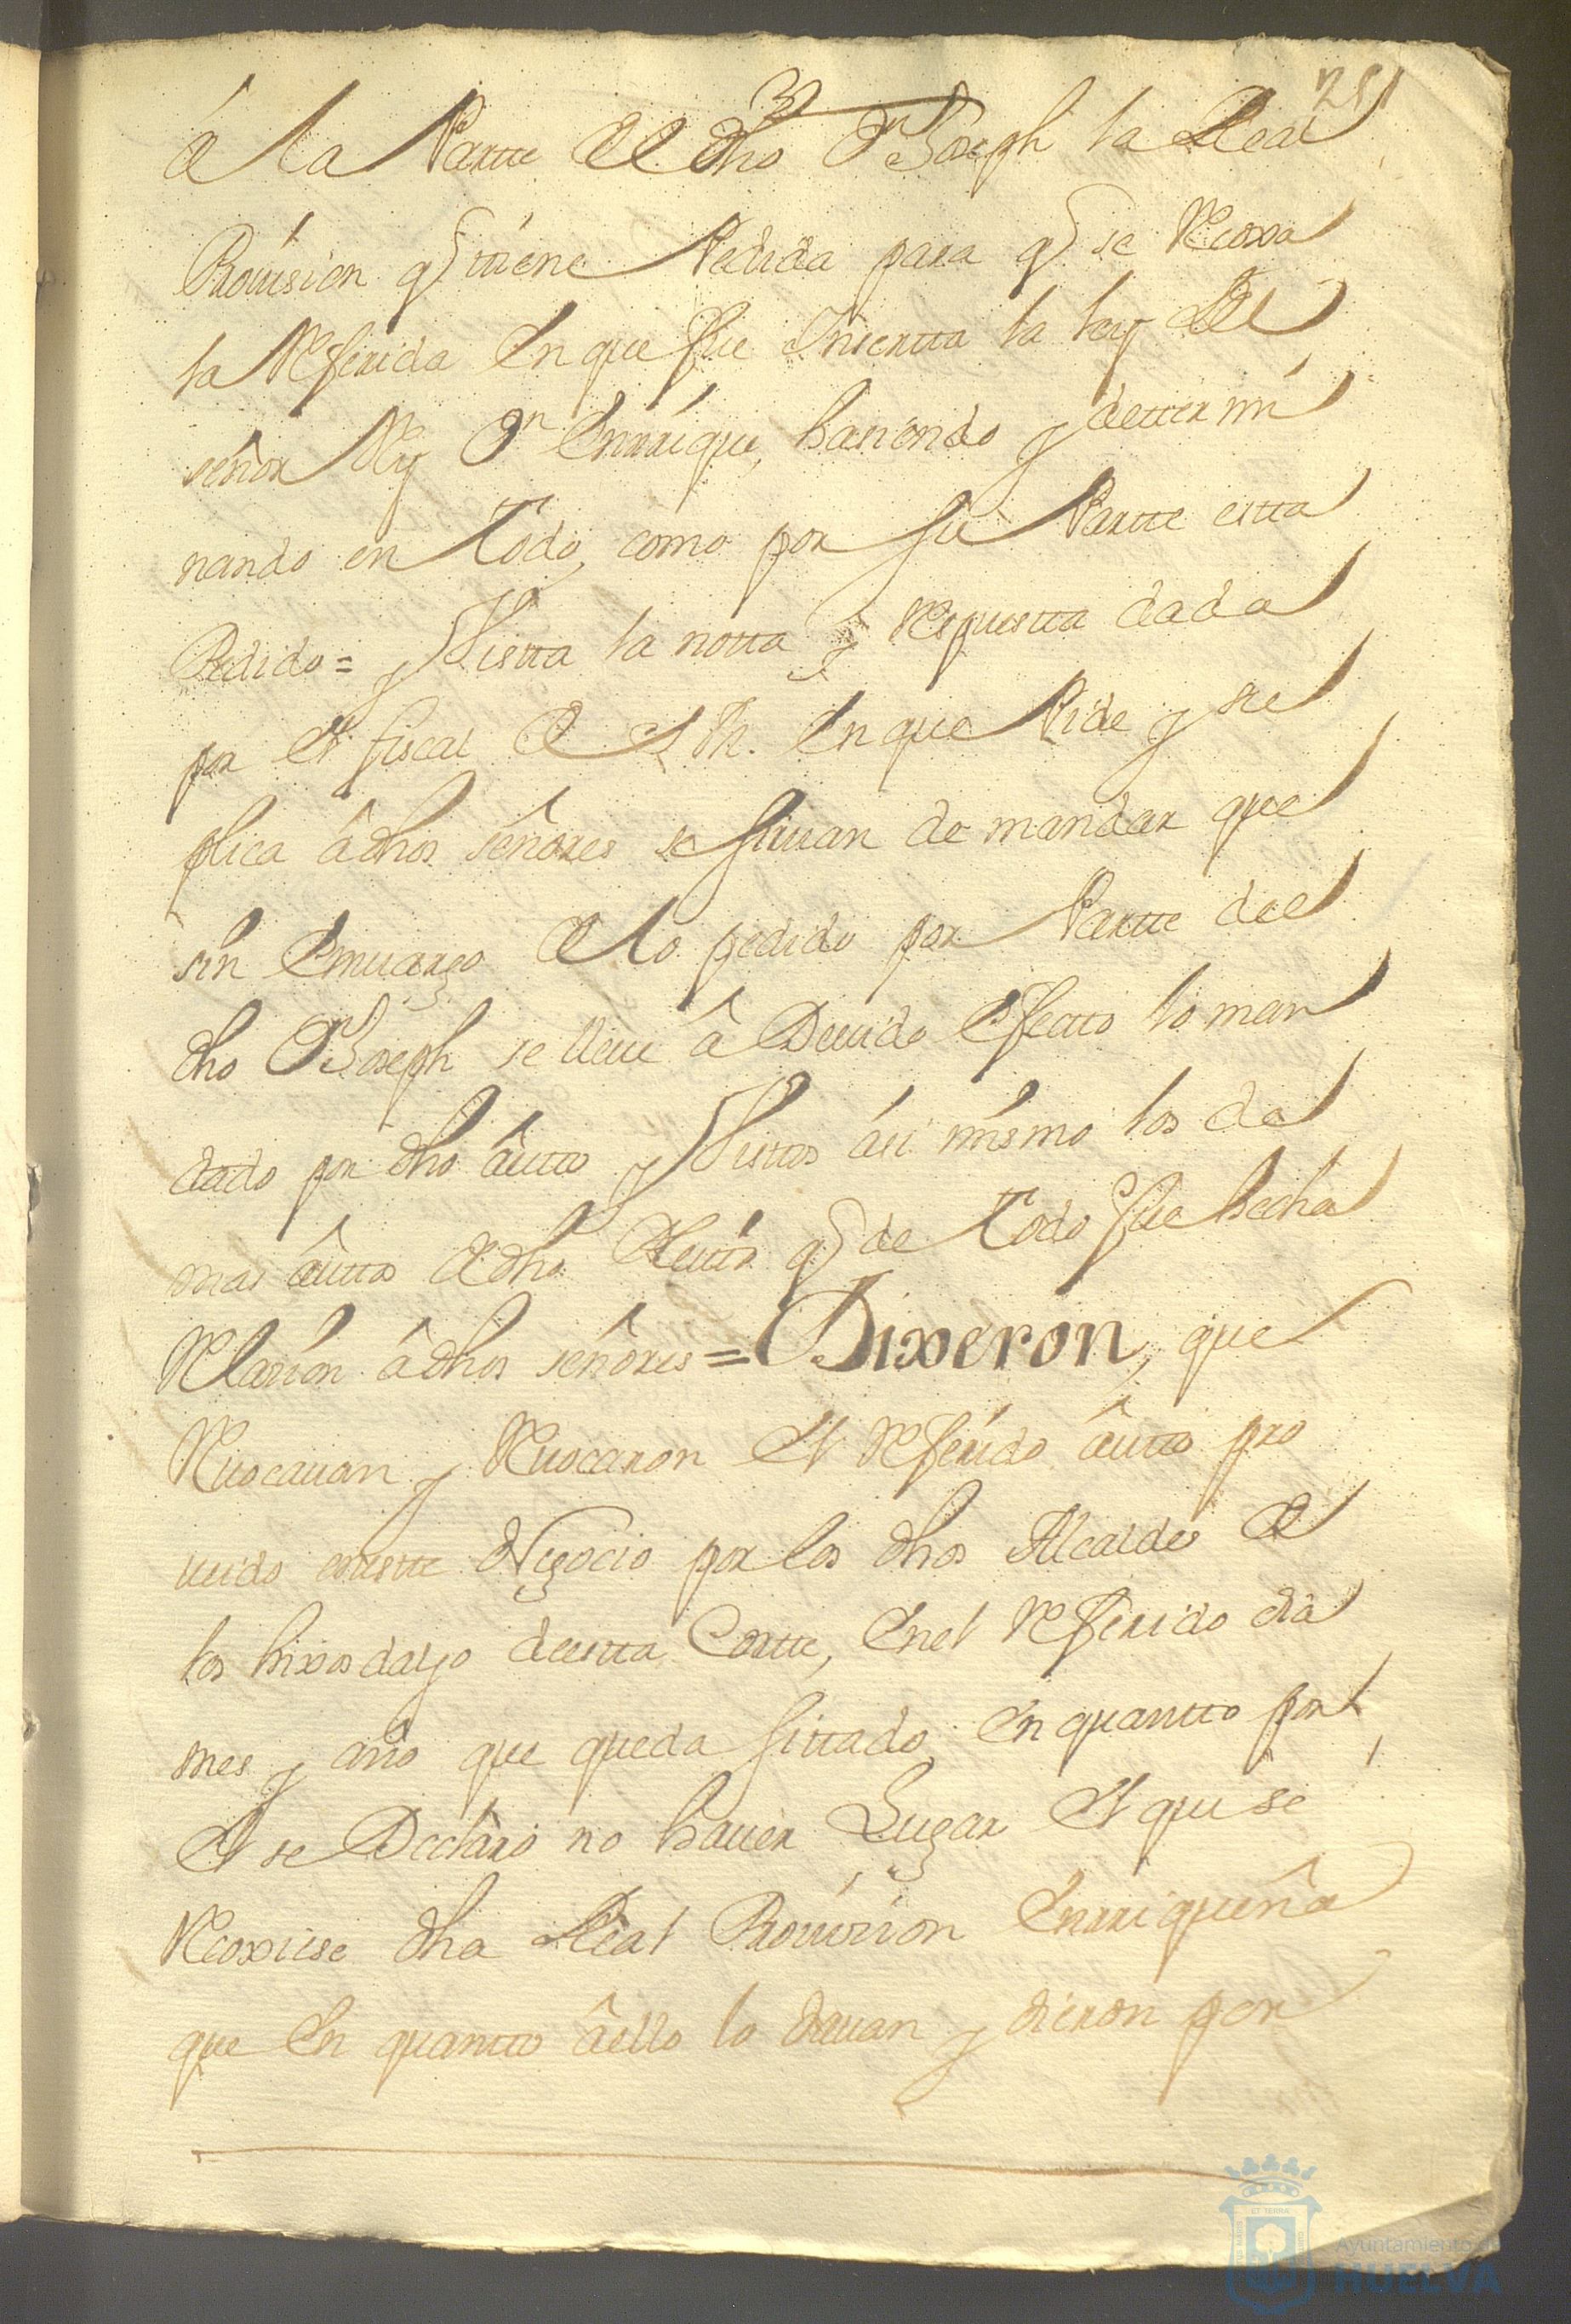 32
251
â la Partte de dho Dn Joseph la Real
Prouision q tiene Pedida para q se Recoxa
la Referida En que fue Inserta la ley Del
señor Rey Dn Enrrique, haciendo y dettermi
nando en Todo, como por su Partte estta
Pedido = y Vistta la notta y Respuestta dada
por el fiscal de S M. En que Pide y su
plica â dhos señores se siruan de mandar que
sin Emuargo de lo pedido por Partte del
dho Dn Joseph se lleue â Deuido Efectto lo man
dado por dho âutto y Visttos ási mismo los de
mas âuttos de dho Pleitto q de Todo fue hecha
Relazion â dhos señores = Dixeron, que
Reuocauan y Reuocaron el Referido âutto pro
ueido en estte Negocio por los dhos Alcaldes de
los hixosdalgo de estta Cortte, En el Referido dia
mes y año que queda sittado, En quantto por
el se Declaró no hauer Lugar el que se
Recoxiese dha Real Prouision Enrriqueña
que En quantto âello lo dauan y dieron por
Ayuntamiento de
HUELVA